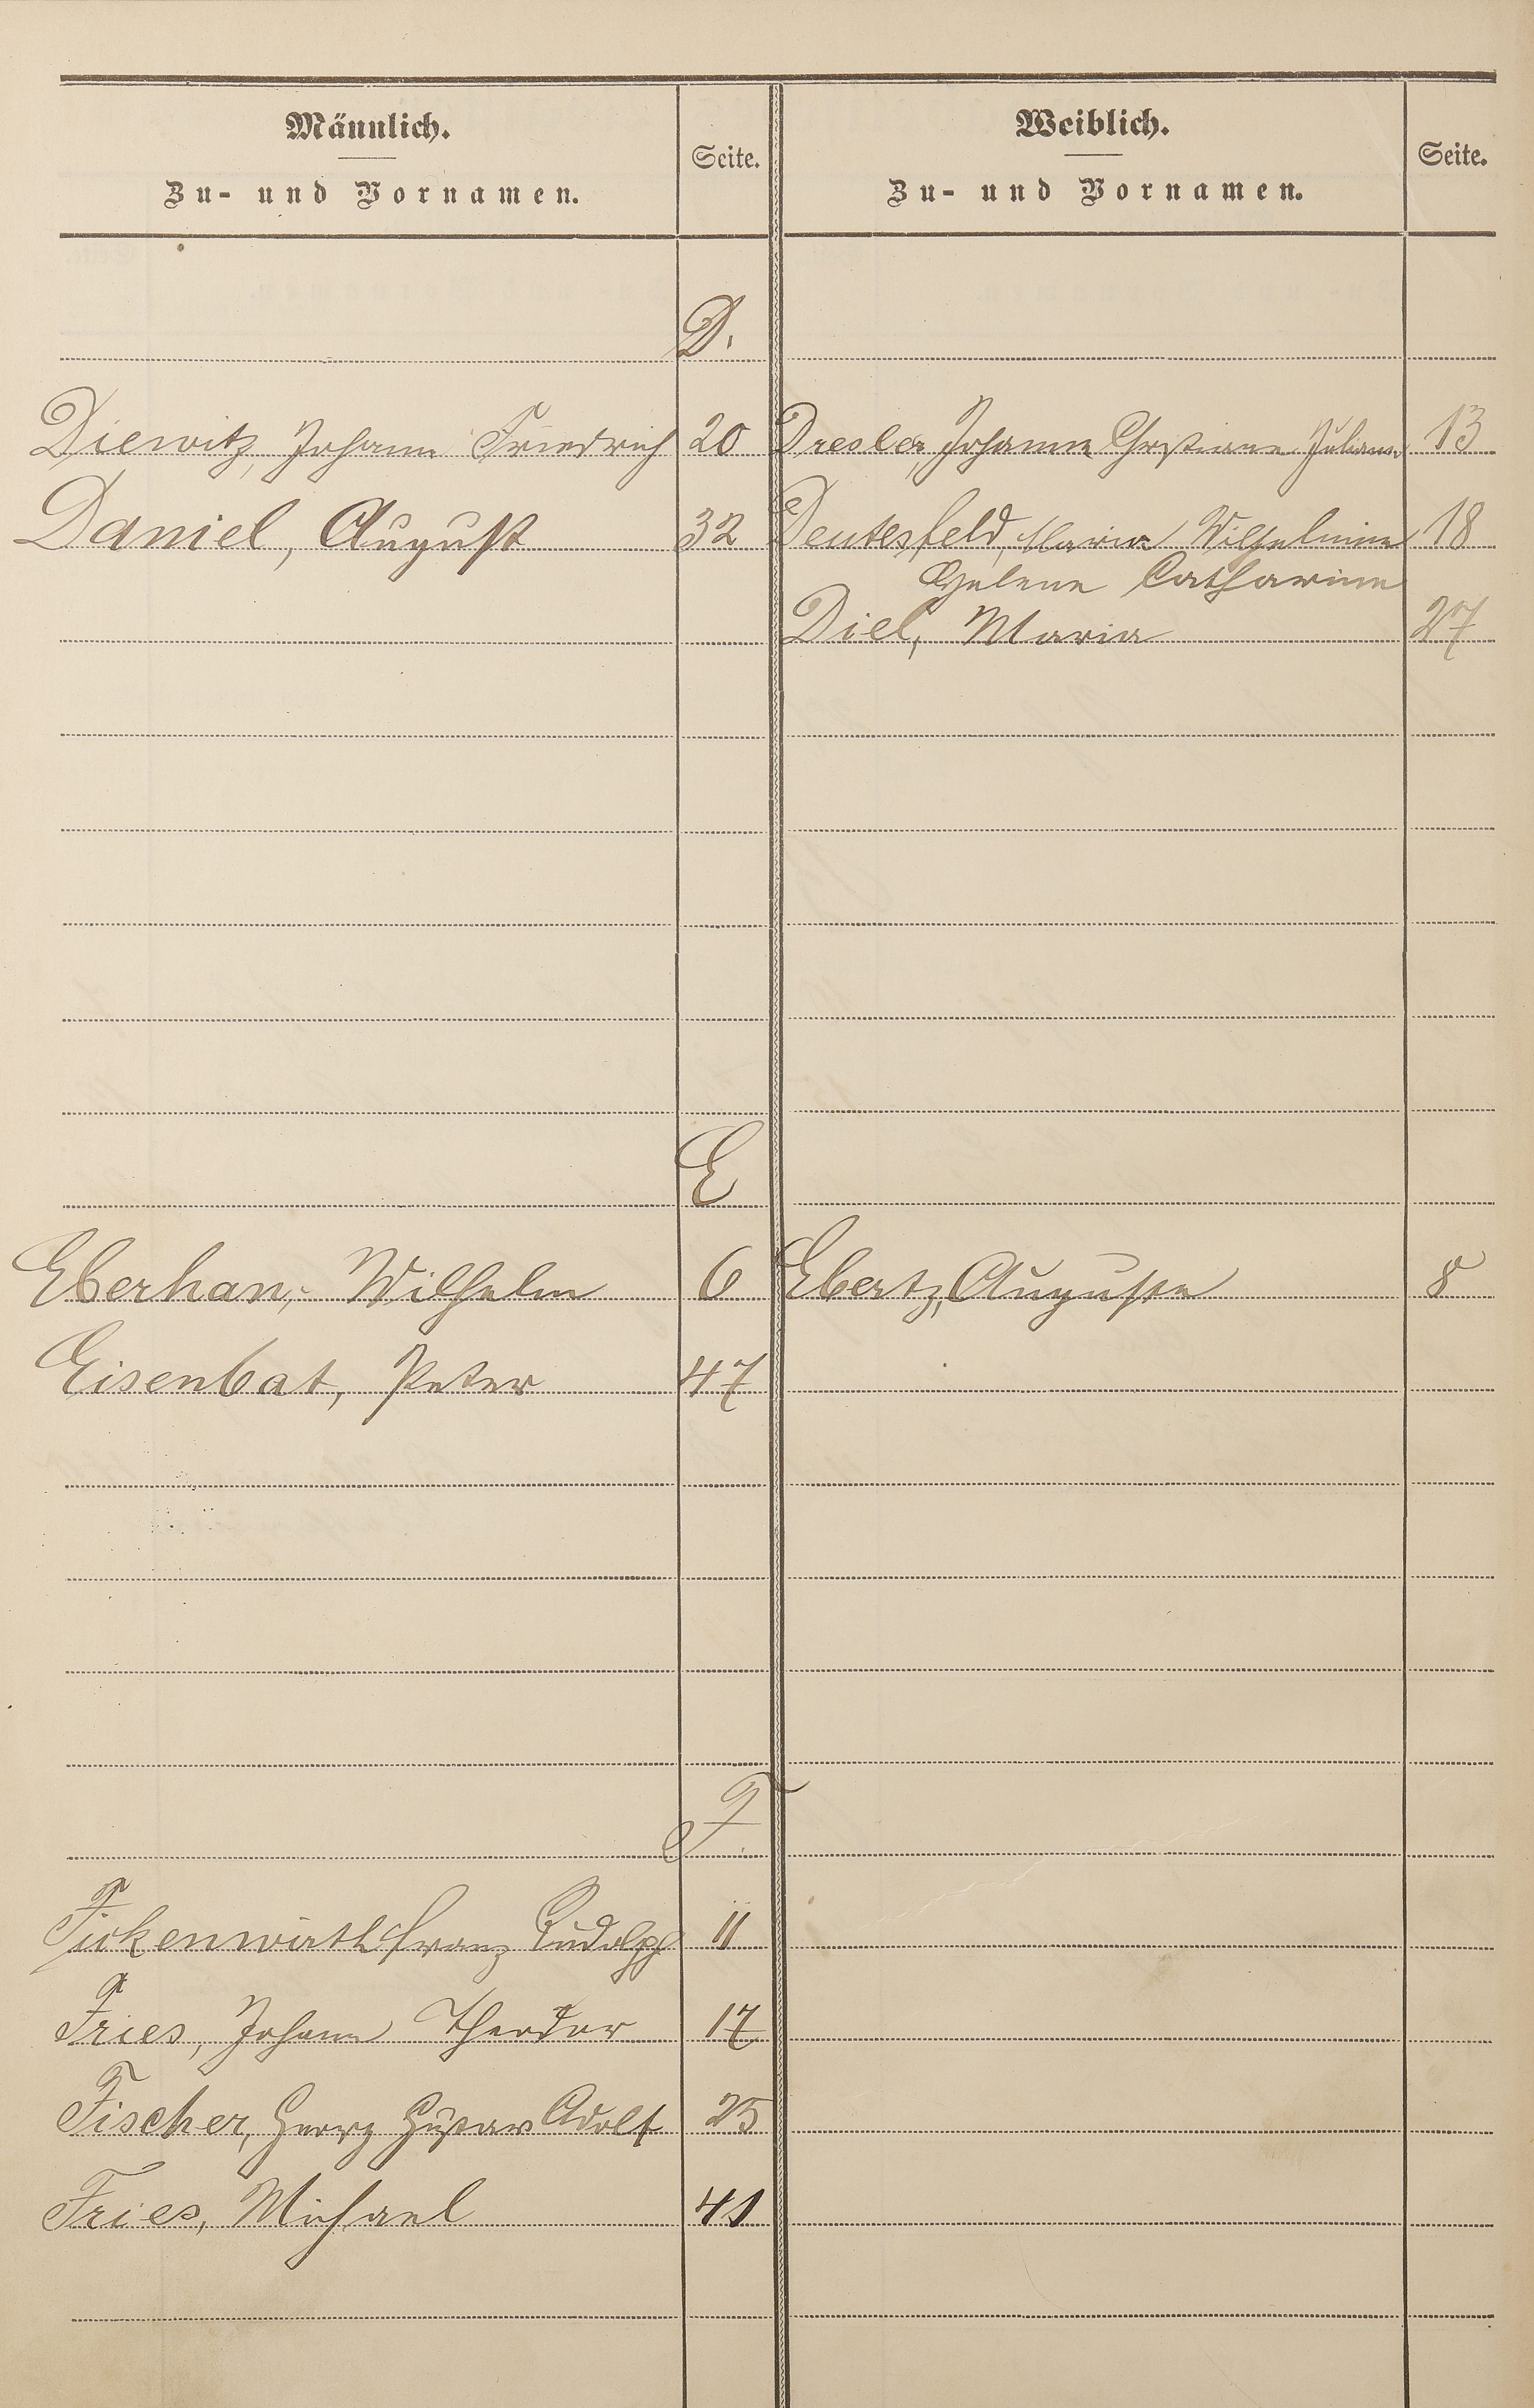 Männlich. Weiblich.
Seite. Seite.
Zu- und Vornamen. Zu- und Vornamen.
D.
Diewitz, Johann Friedrich 20 Dresler, Johanne Christiane Juliane 13
Daniel, August 32 Deutesfeld, Maria Wilhelmine 18
Helene Catharine
Diel, Maria 27
E
Eberhan, Wilhelm 6 Ebertz, Auguste 8
Eisenbat, Peter 47
F.
Fickenwirth Franz Rudolph 11
Fries, Johann Theodor 17
Fischer, Georg Gustav Adolf 25
Fries, Michael 41